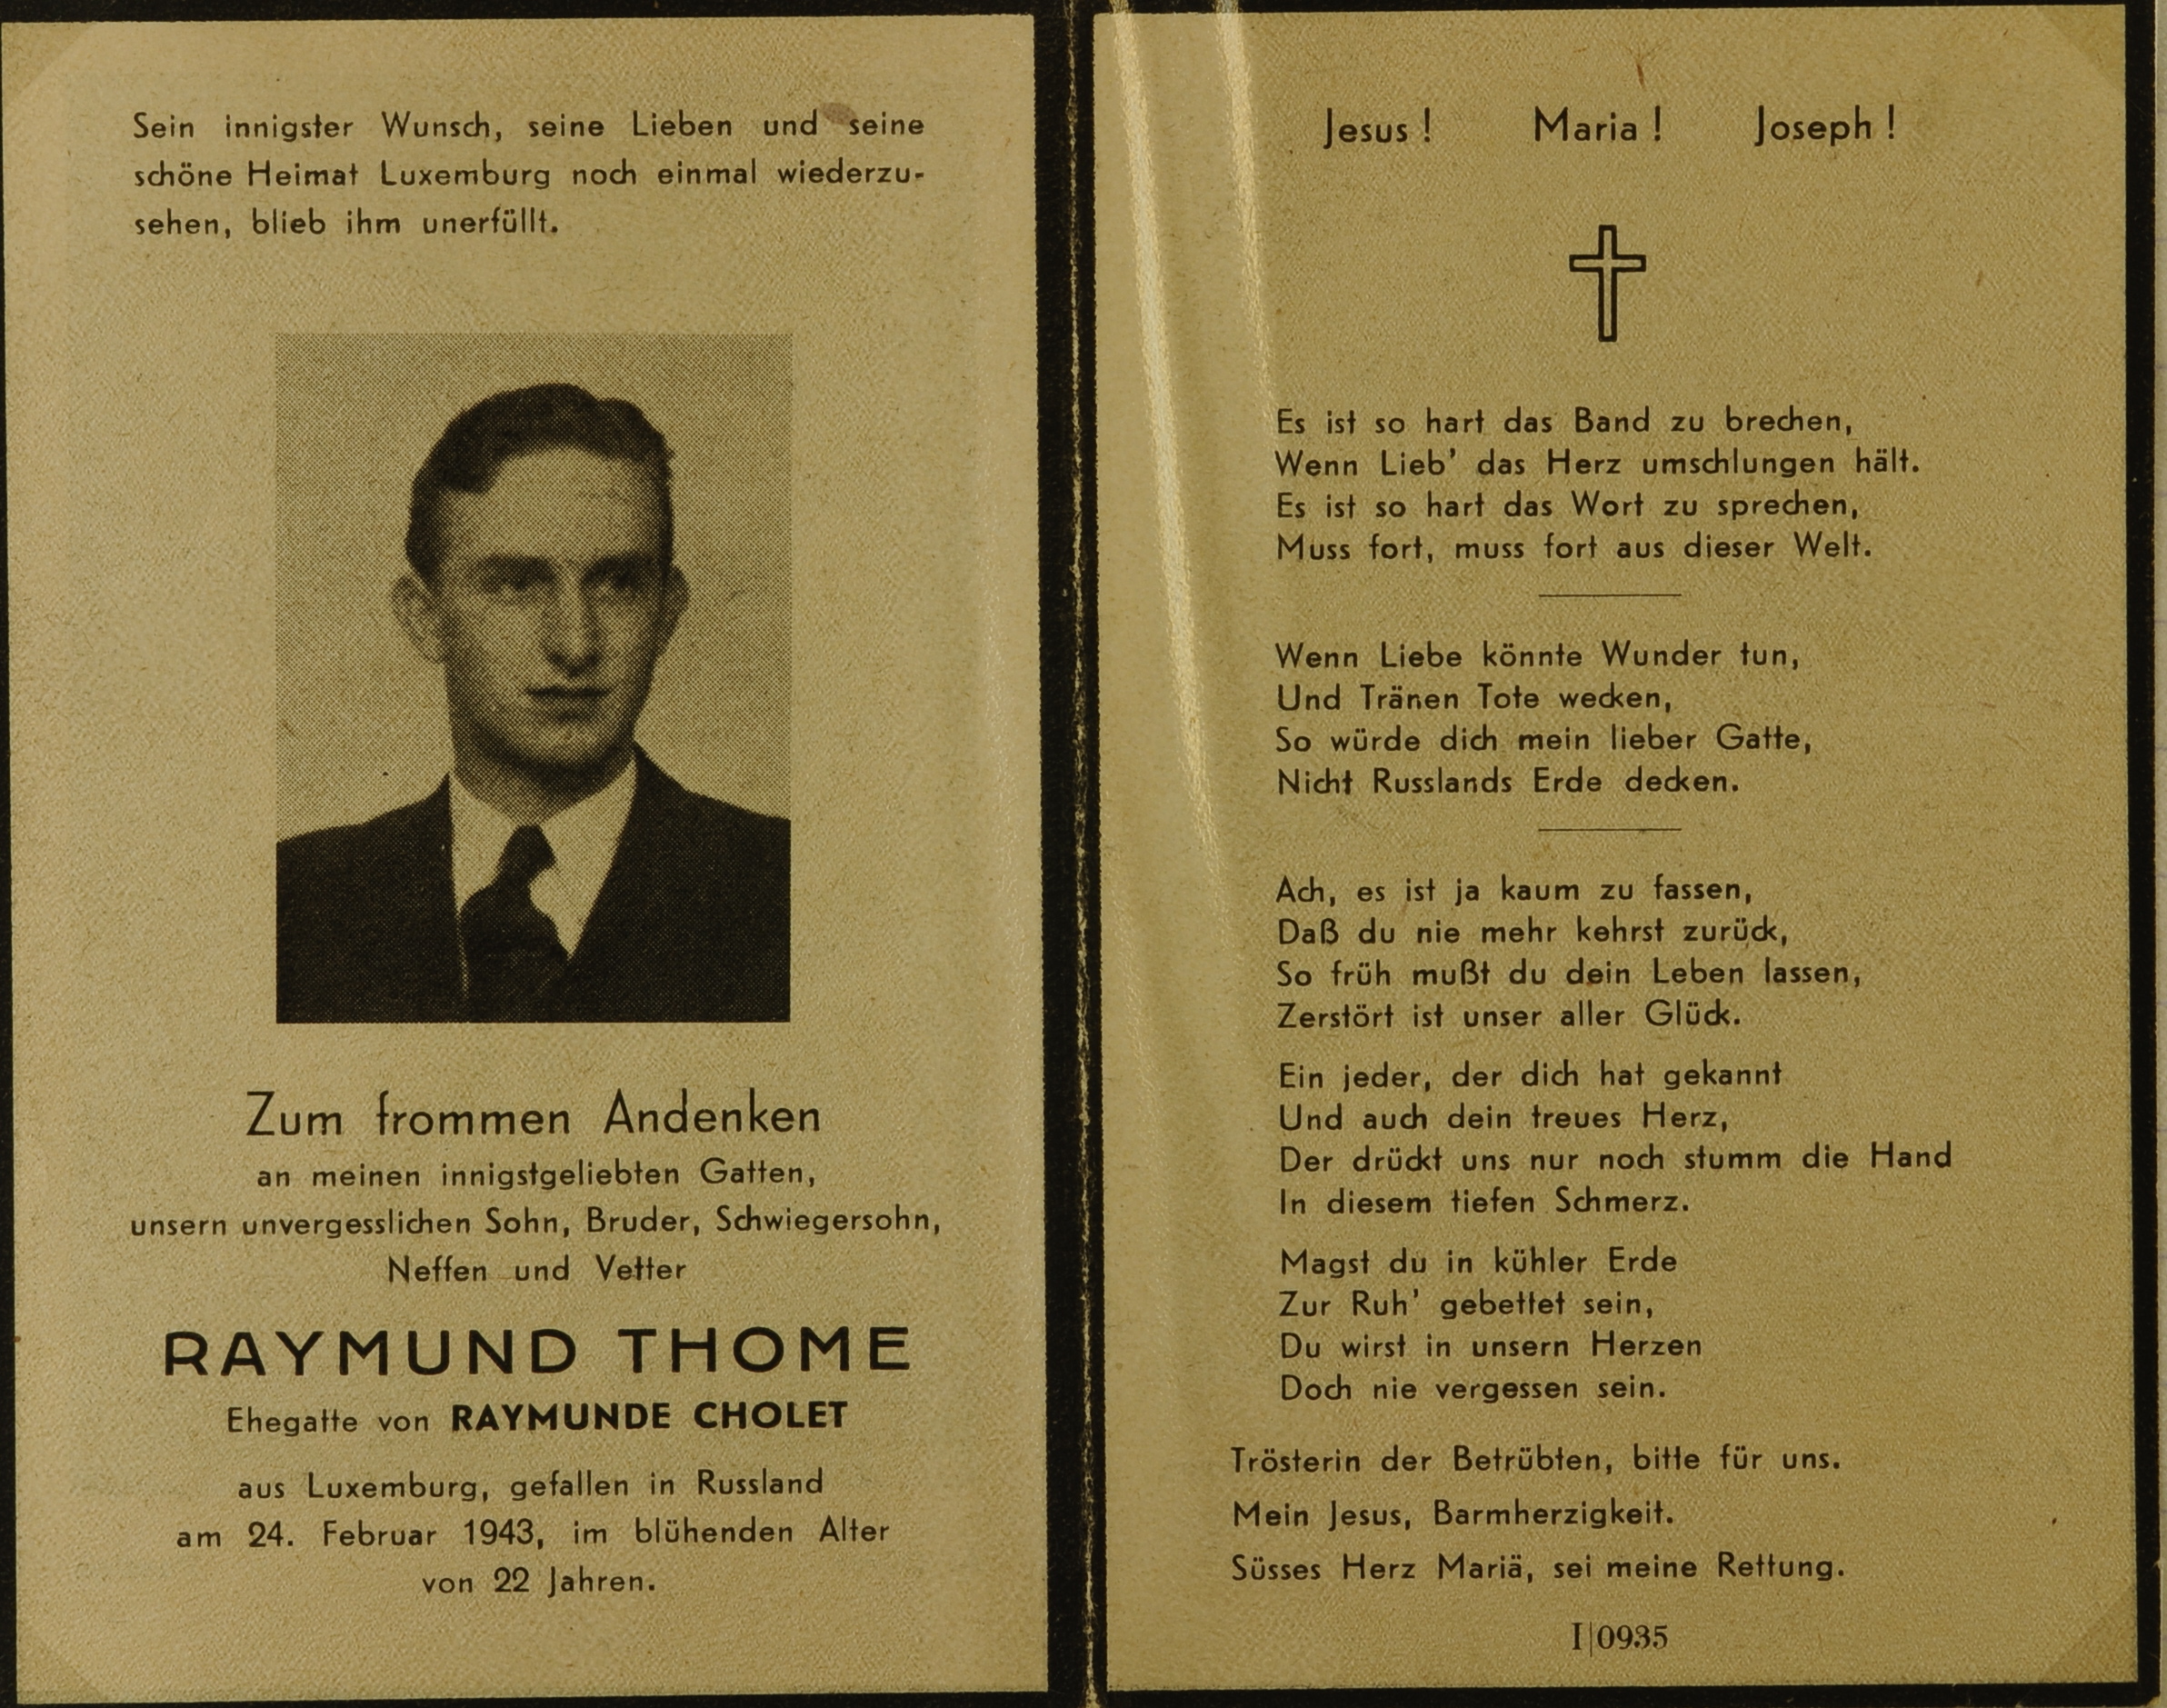 Sein innigster Wunsch, seine Lieben und seine
schöne Heimat Luxemburg noch einmal wiederzu-
sehen, blieb ihm unerfüllt.
Zum frommen Andenken
an meinen innigstgeliebten Gatten,
unsern unvergesslichen Sohn, Bruder, Schwiegersohn,
Neffen und Vetter
RAYMUND THOME
Ehegatte von RAYMUNDE CHOLET
aus Luxemburg, gefallen in Russland
am 24. Februar 1943, im blühenden Alter
von 22 Jahren.
Jesus! Maria! Joseph!
Es ist so hart das Band zu brechen,
Wenn Lieb' das Herz umschlungen hält.
Es ist so hart das Wort zu sprechen,
Muss fort, muss fort aus dieser Welt.
Wenn Liebe könnte Wunder tun,
Und Tränen Tote wecken,
So würde dich mein lieber Gatte,
Nicht Russlands Erde decken.
Ach, es ist ja kaum zu fassen,
Daß du nie mehr kehrst zurück,
So früh mußt du dein Leben lassen,
Zerstört ist unser aller Glück.
Ein jeder, der dich hat gekannt
Und auch dein treues Herz,
Der drückt uns nur noch stumm die Hand
In diesem tiefen Schmerz.
Magst du in kühler Erde
Zur Ruh' gebettet sein,
Du wirst in unsern Herzen
Doch nie vergessen sein.
Trösterin der Betrübten, bitte für uns.
Mein Jesus, Barmherzigkeit.
Süsses Herz Mariä, sei meine Rettung.
I|0935